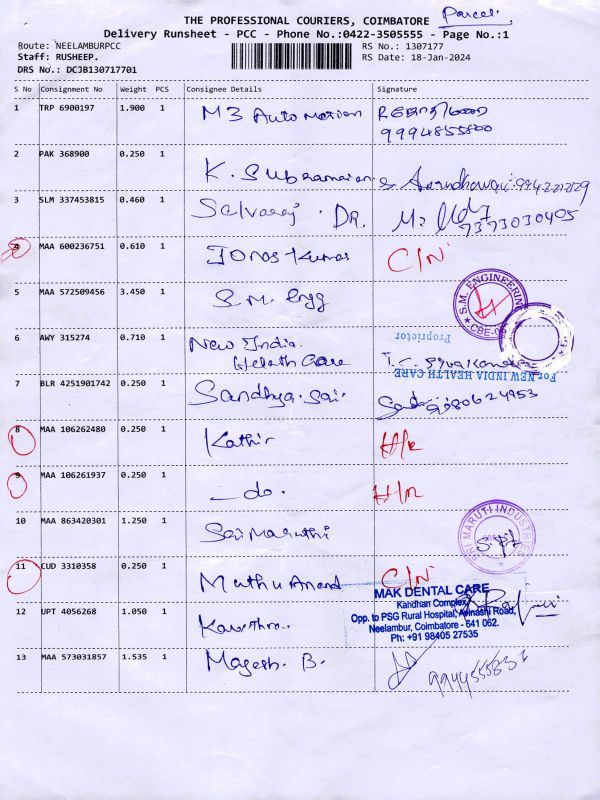 THE PROFESSIONAL COURIERS, COIMBATORE Parcel.
Delivery Runsheet - PCC - Phone No.:0422-3505555 - Page No.:1
Route: NEELAMBURPCC RS No.: 1307177
Staff: RUSHEEP. RS Date: 18-Jan-2024
DRS No.: DCJB130717701
S No Consignment No Weight PCS Consignee Details Signature
1 TRP 6900197 1.900 1 M3 Automation
9994855800
2 PAK 368900 0.250 1 K. Subramanian
3 SLM 337453815 0.460 1 Selvaraj. DR.
7373030405
4 MAA 600236751 0.610 1 Kumar C/N
5 MAA 572509456 3.450 1 S.M. Engg S.M. ENGINEERING CBE
6 AWY 315274 0.710 1 New India Proprietor
Helath Care
For NEW INDIA HEALTH CARE
7 BLR 4251901742 0.250 1 Sandhya. Sai.
8 MAA 106262480 0.250 1 Kathir
9 MAA 106261937 0.250 1 -do.
10 MAA 863420301 1.250 1 Sai Maruthi SRI MARUTI INDUSTRIES
11 CUD 3310358 0.250 1 Muthu Anand C/N
MAK DENTAL CARE
Kandhan Complex,
12 UPT 4056268 1.050 1 Opp. to PSG Rural Hospital, Avinashi Road,
Neelambur, Coimbatore - 641 062.
Ph: +91 98405 27535
13 MAA 573031857 1.535 1 Magesh. B.